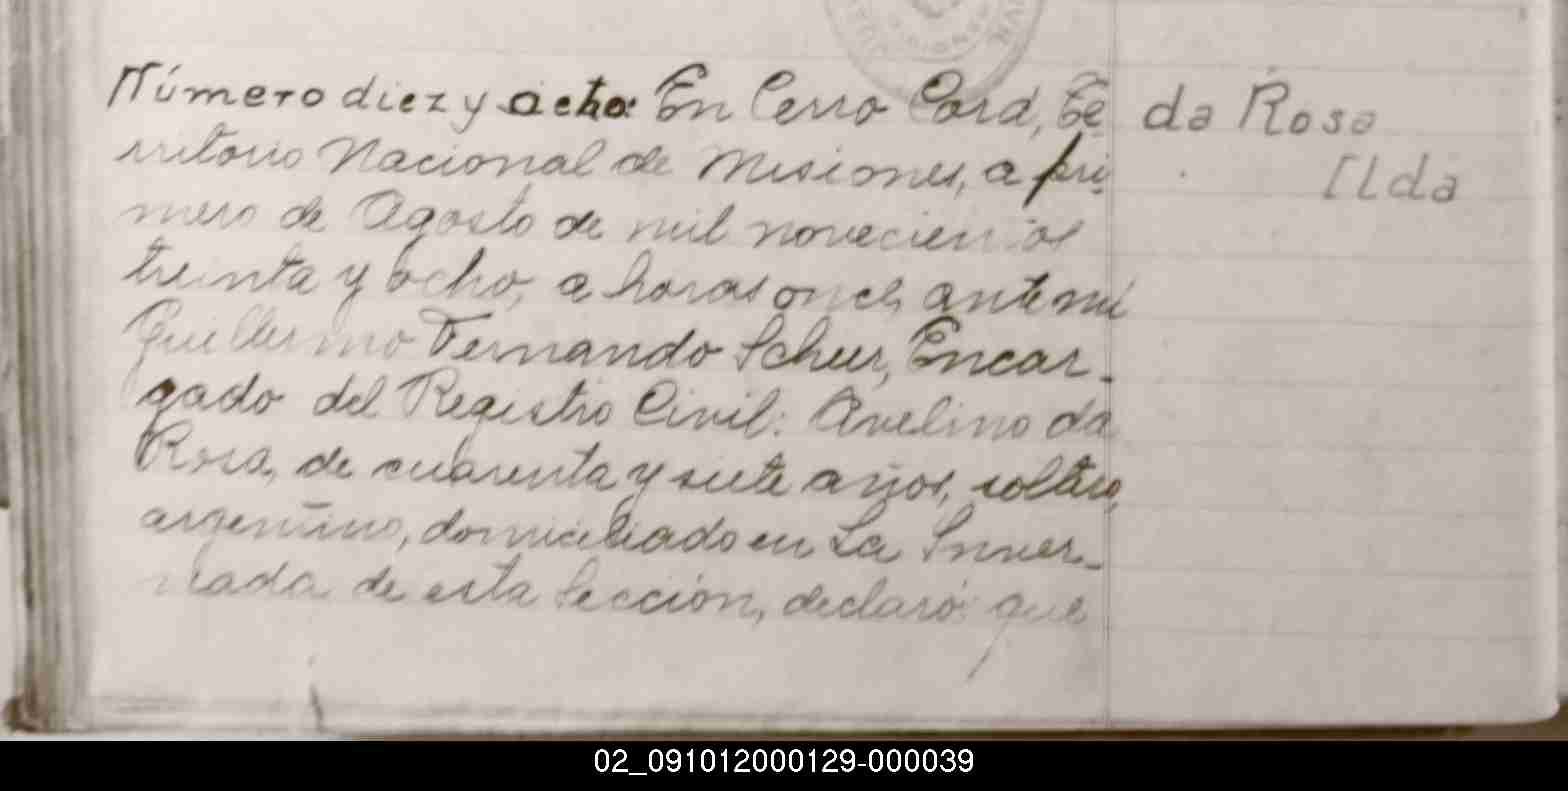 Número diez y ocho: En Cerro Corá, Te
da Rosa
Ilda
rritorio Nacional de Misiones, a pri
mero de Agosto de mil novecientos
treinta y ocho, a horas once, ante mi
Guillermo Fernando Scheer, Encar-
gado del Registro Civil: Avelino da
Rosa, de cuarenta y siete años, soltero,
argentino, domiciliado en La Inver-
nada de esta Sección, declaró: que
02_091012000129-000039